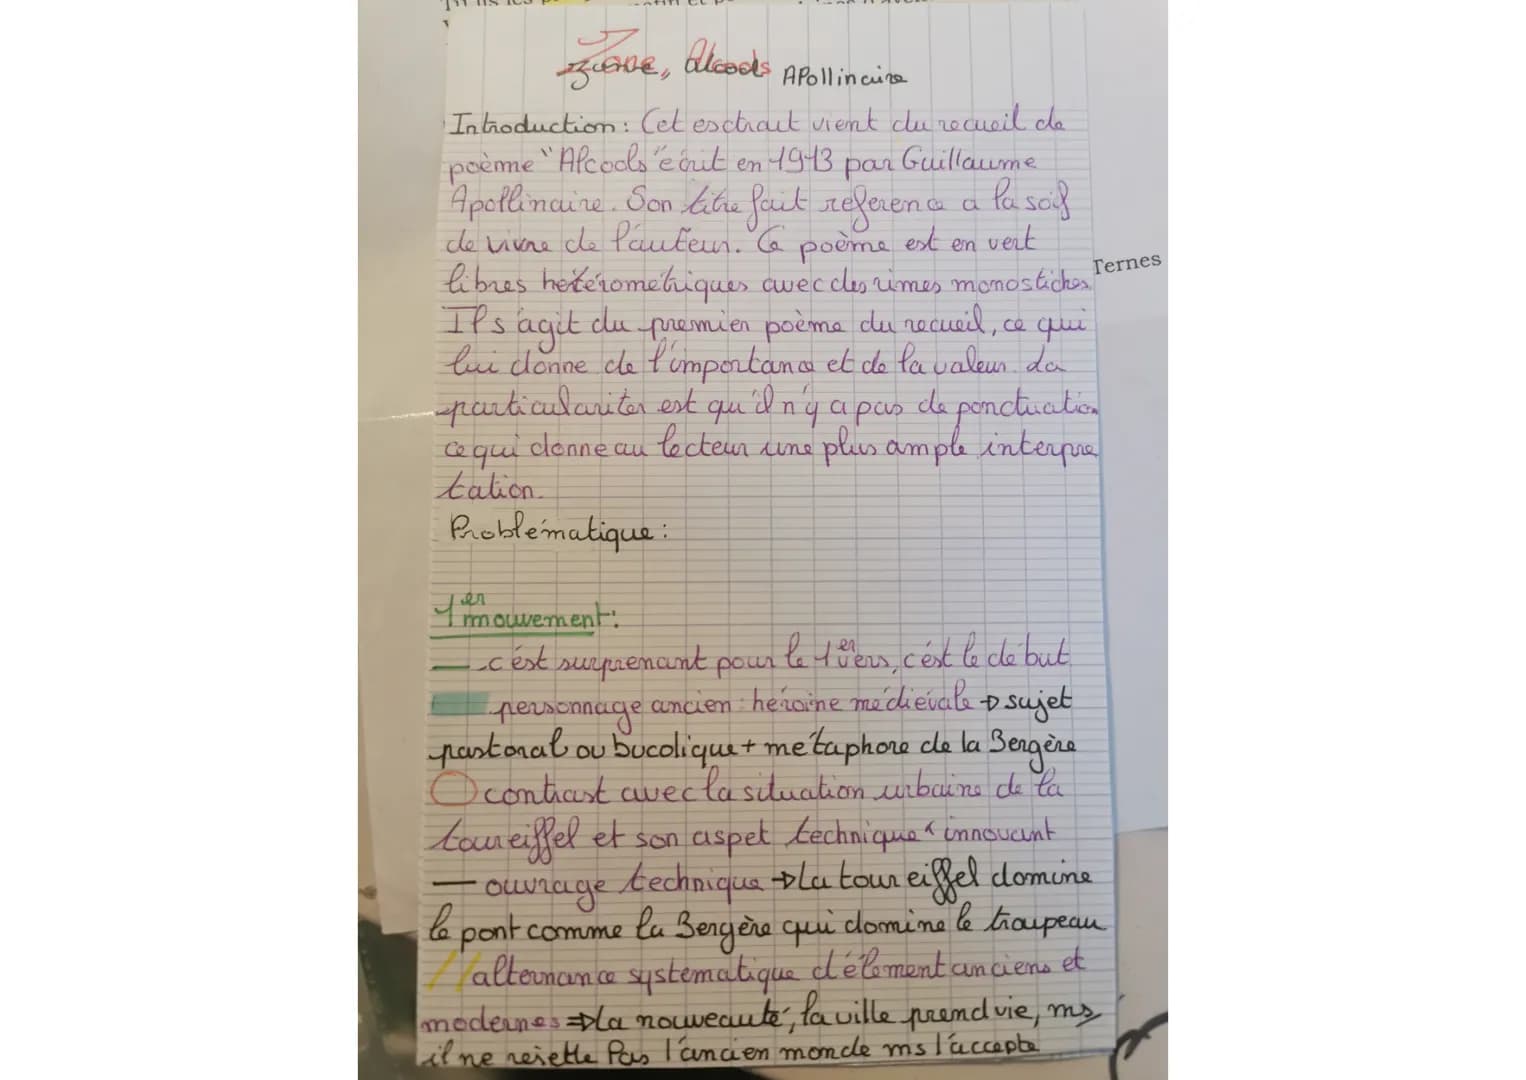 Zone, Alcools APollinaire
Introduction: Cet esctrait vient du recueil de
poème "Alcools" écrit en 1913 par Guillaume
Apollinaire. Son titre fait reference a la soif
de vivre de l'auteur. Ce poème est en vert
libres hétérométriques avec des rimes monostiches
Ternes
Il s'agit du premier poème du recueil, ce qui
lui donne de l'importance et de la valeur. La
particulariter est qu'il n'y a pas de ponctuation
ce qui donne au lecteur une plus ample interpre
tation.
Problématique:
1er mouvement:
— c'est surprenant pour le 1er vers, c'est le debut
personnage ancien: héroine mediévale → sujet
pastoral ou bucolique + métaphore de la Bergère
contrast avec la situation urbaine de la
tour eiffel et son aspet technique innovant
— ouvrage technique → La tour eiffel domine
le pont comme la Bergère qui domine le troupeau
// alternance systématique d'élement anciens et
modernes ⇒ La nouveauté, la ville prend vie, ms
il ne rejette Pas l'ancien monde ms l'accepte